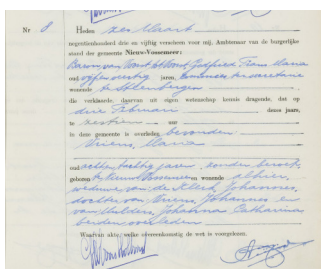 Nr 8 Heden zes Maart
negentienhonderd drie en vijftig verscheen voor mij, Ambtenaar van de burgerlijke
stand der gemeente Nieuw-Vossemeer:
Godfried Frans Maria
oud jaren,
wonende te Steenbergen
die verklaarde, daarvan uit eigen wetenschap kennis dragende, dat op
drie Februari dezes jaars,
te zestien uur
in deze gemeente is overleden bevonden:
Vriens, Maria
oud achten tachtig jaren zonder beroep,
geboren te Nieuw-Vossemeer en wonende alhier,
weduwe van de Klerk Johannes,
dochter van Vriens, Johannes en
Johanna Catharina
beiden overleden
Waarvan akte, welke overeenkomstig de wet is voorgelezen.